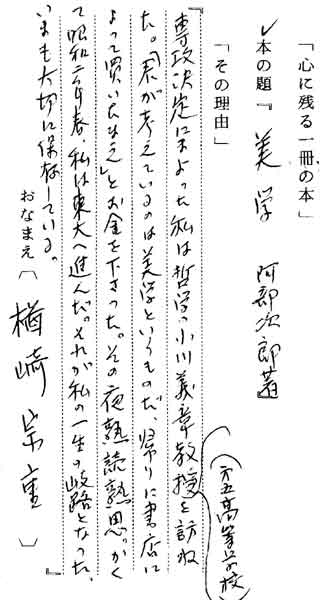 「心に残る一冊の本」
✓本の題『美学 阿部次郎著』
「その理由」
『専攻決定にまよった私は哲学・小川義章教授を訪ね
(第五高等学校)
た。「君が考えているのは美学というものだ、帰りに書店に
よって買いたまえ」とお金を下さった。その夜熟読熟思。かく
て昭和六年春、私は東大へ進んだ。それが私の一生の岐路となった。
いまも大切に保存している。』
おなまえ〔楢崎宗重〕